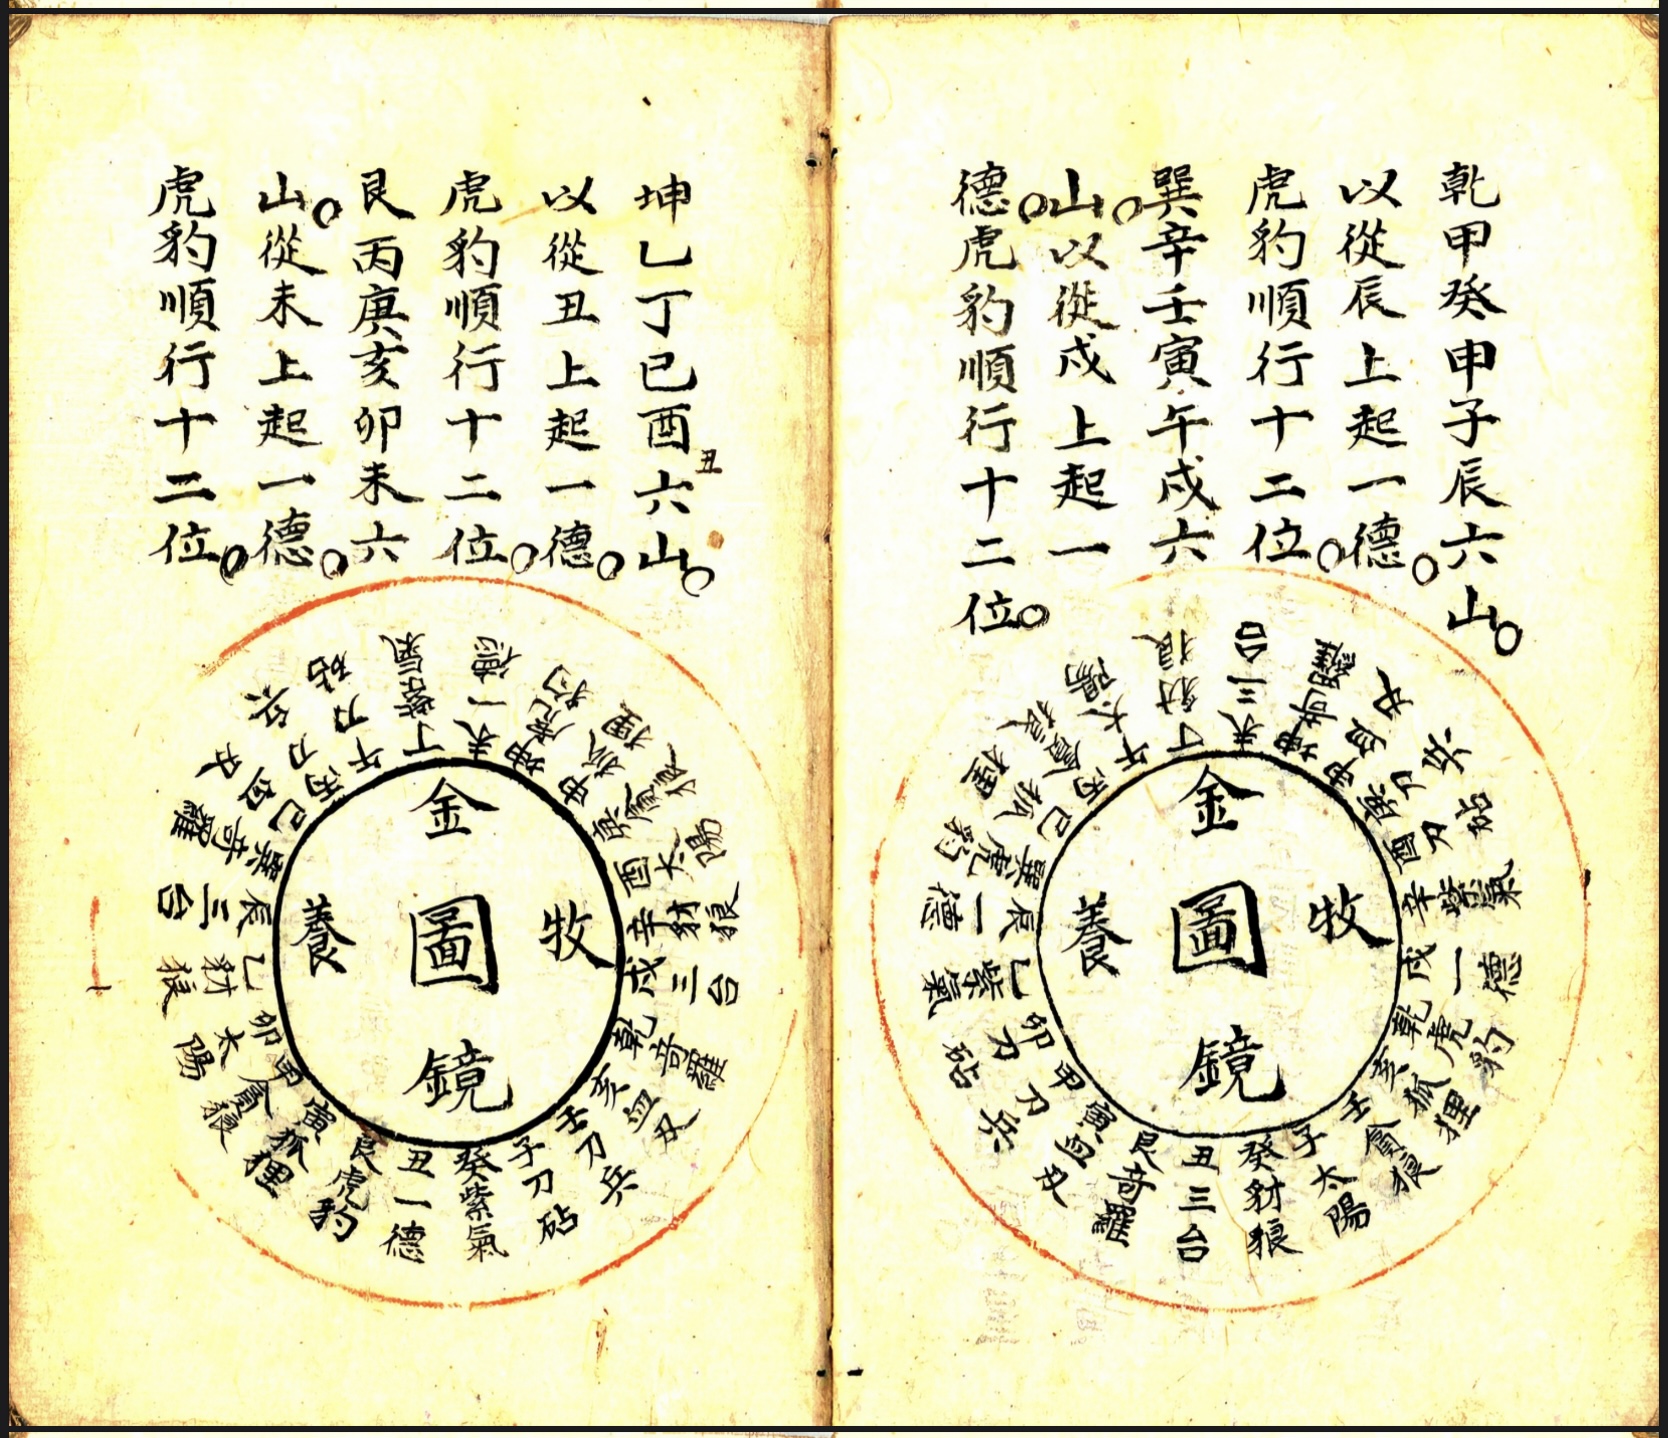 乾甲癸申子辰六山。
以從辰上起一德。
虎豹順行十二位。
巽辛壬寅午戌六
山。以從戌上起一
德。虎豹順行十二位。
金
牧圖養
鏡
丁豺狼
未三台
坤奇羅
申血刃
庚刀兵
酉刀砧
辛紫氣
戌一德
乾虎豹
亥狐狸
壬貪狼
子太陽
癸豺狼
丑三台
艮奇羅
寅血刃
甲刀兵
卯刀砧
乙紫氣
辰一德
巽虎豹
巳狐狸
丙貪狼
午太陽
坤乙丁巳酉丑六山。
以從丑上起一德。
虎豹順行十二位。
艮丙庚亥卯未六
山。從未上起一德。
虎豹順行十二位。
金
牧圖養
鏡
丁紫氣
未一德
坤虎豹
申狐狸
庚貪狼
酉太陽
辛豺狼
戌三台
乾奇羅
亥血刃
壬刀兵
子刀砧
癸紫氣
丑一德
艮虎豹
寅狐狸
甲貪狼
卯太陽
乙豺狼
辰三台
巽奇羅
巳血刃
丙刀兵
午刀砧